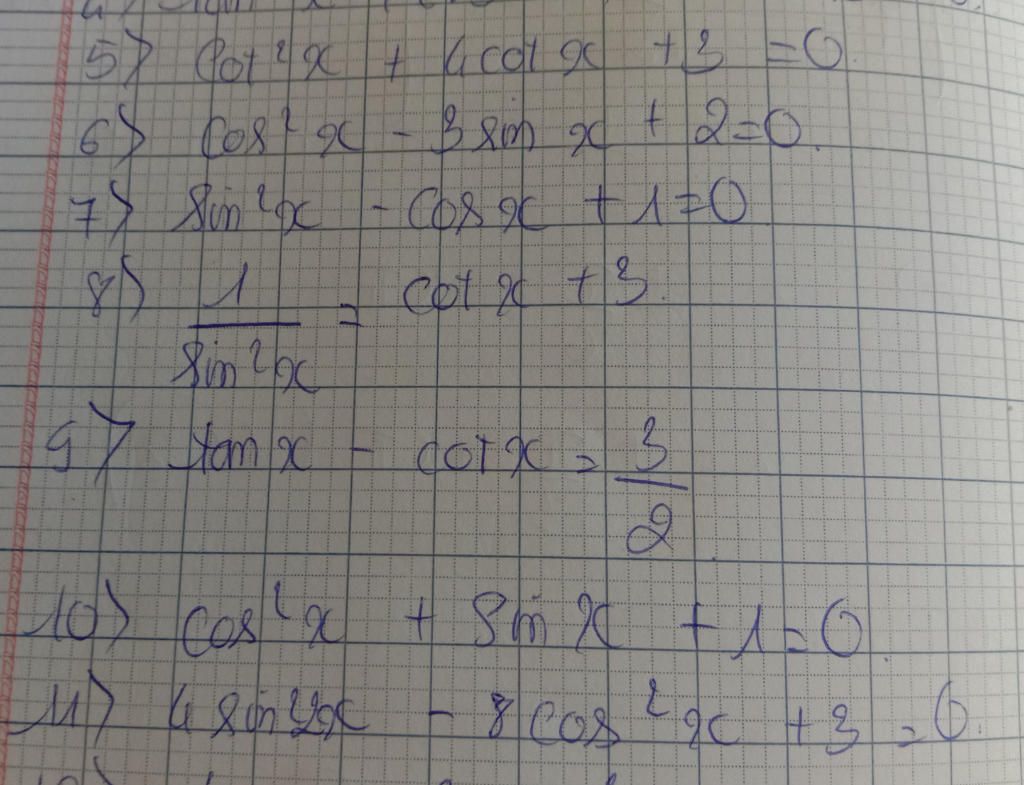 5) cot²x + 4cot x + 3 = 0.
6) cos²x - 3sin x + 2 = 0.
7) sin²x - cos x + 1 = 0
8) 1/sin²x = cot x + 3.
9) tan x - cot x = 3/2.
10) cos²x + sin x + 1 = 0.
11) 4 sin²2x - 8 cos²x + 3 = 0.